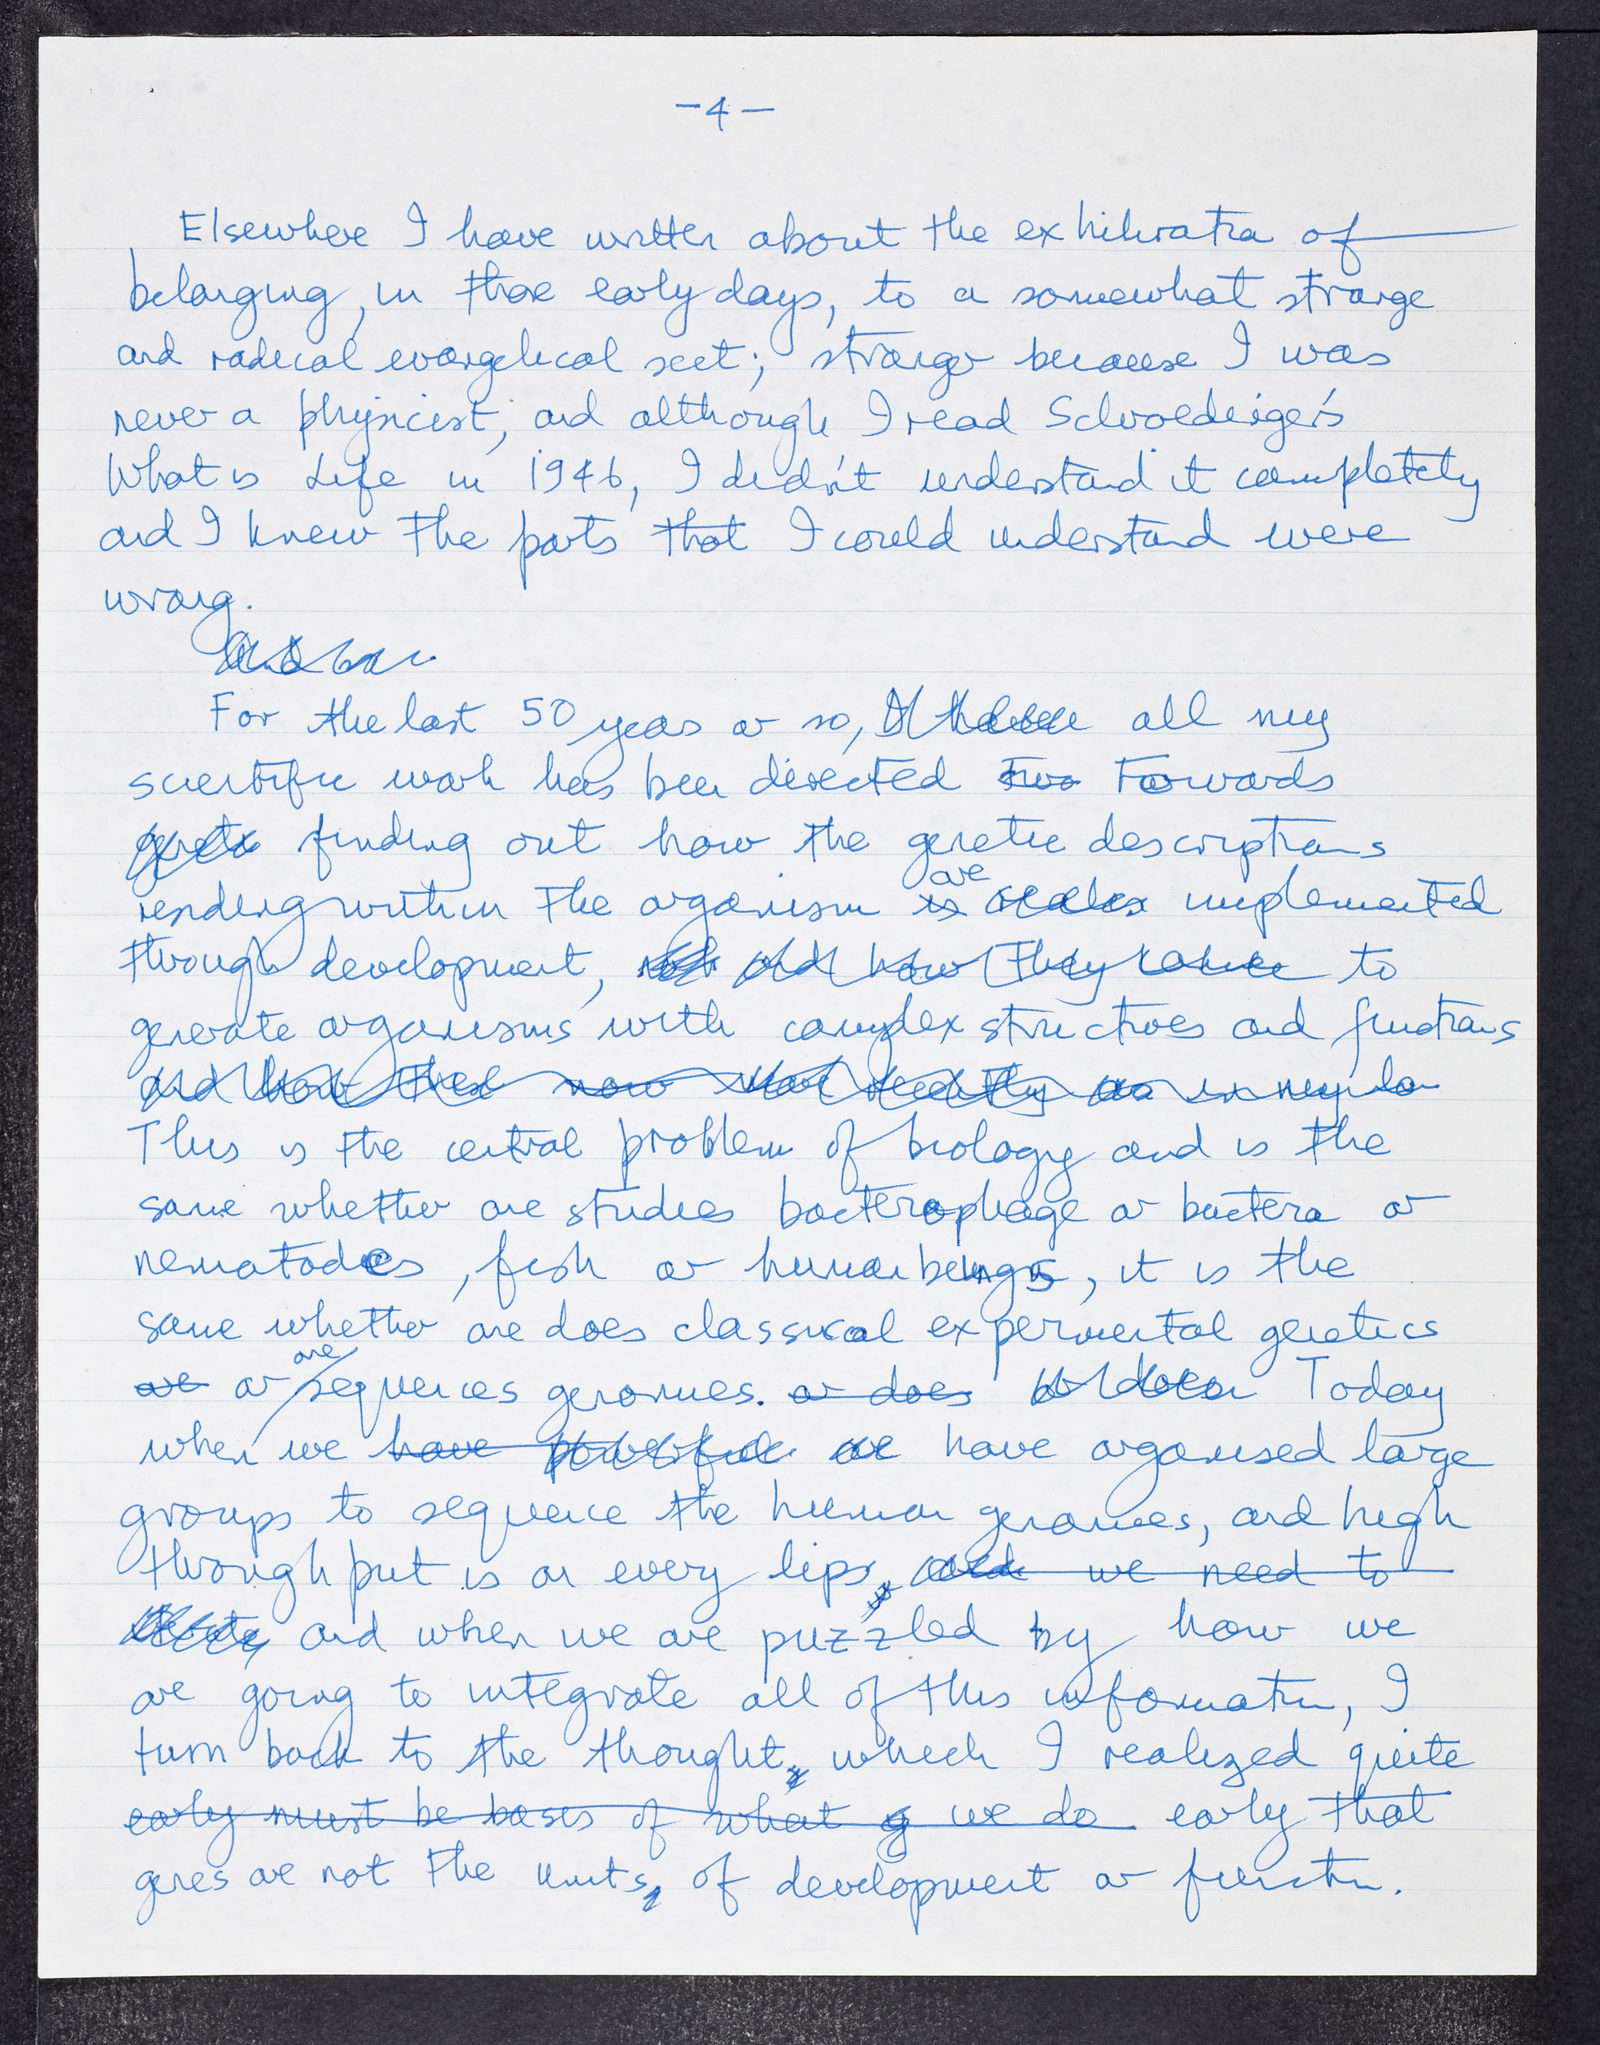 -4-
Elsewhere I have written about the exhileration of
belonging, in those early days, to a somewhat strange
and radical evangelical sect; stranger because I was
never a physicist, and although I read Schroedinger's
What is Life in 1946, I didn't understand it completely
and I knew the parts that I could understand were
wrong.
For the last 50 years or so, all my
scientific work has been directed two towards
finding out how the genetic descriptions
are
residing within the organism is implemented
through development, and how they to
generate organisms with complex structures and functions
This is the central problem of biology and is the
same whether one studies bacteriophage or bacteria or
nematodes, fish or human beings, it is the
same whether one does classical experimental genetics
one
are or sequences genomes. or does Today
when we have powerful we have organised large
groups to sequence the human genomes, and high
throughput is on every lips, and we need to
and when we are puzzled by how we
are going to integrate all of this information, I
turn back to the thought, which I realized quite
early must be basis of what we do early that
genes are not the units, of development or function.